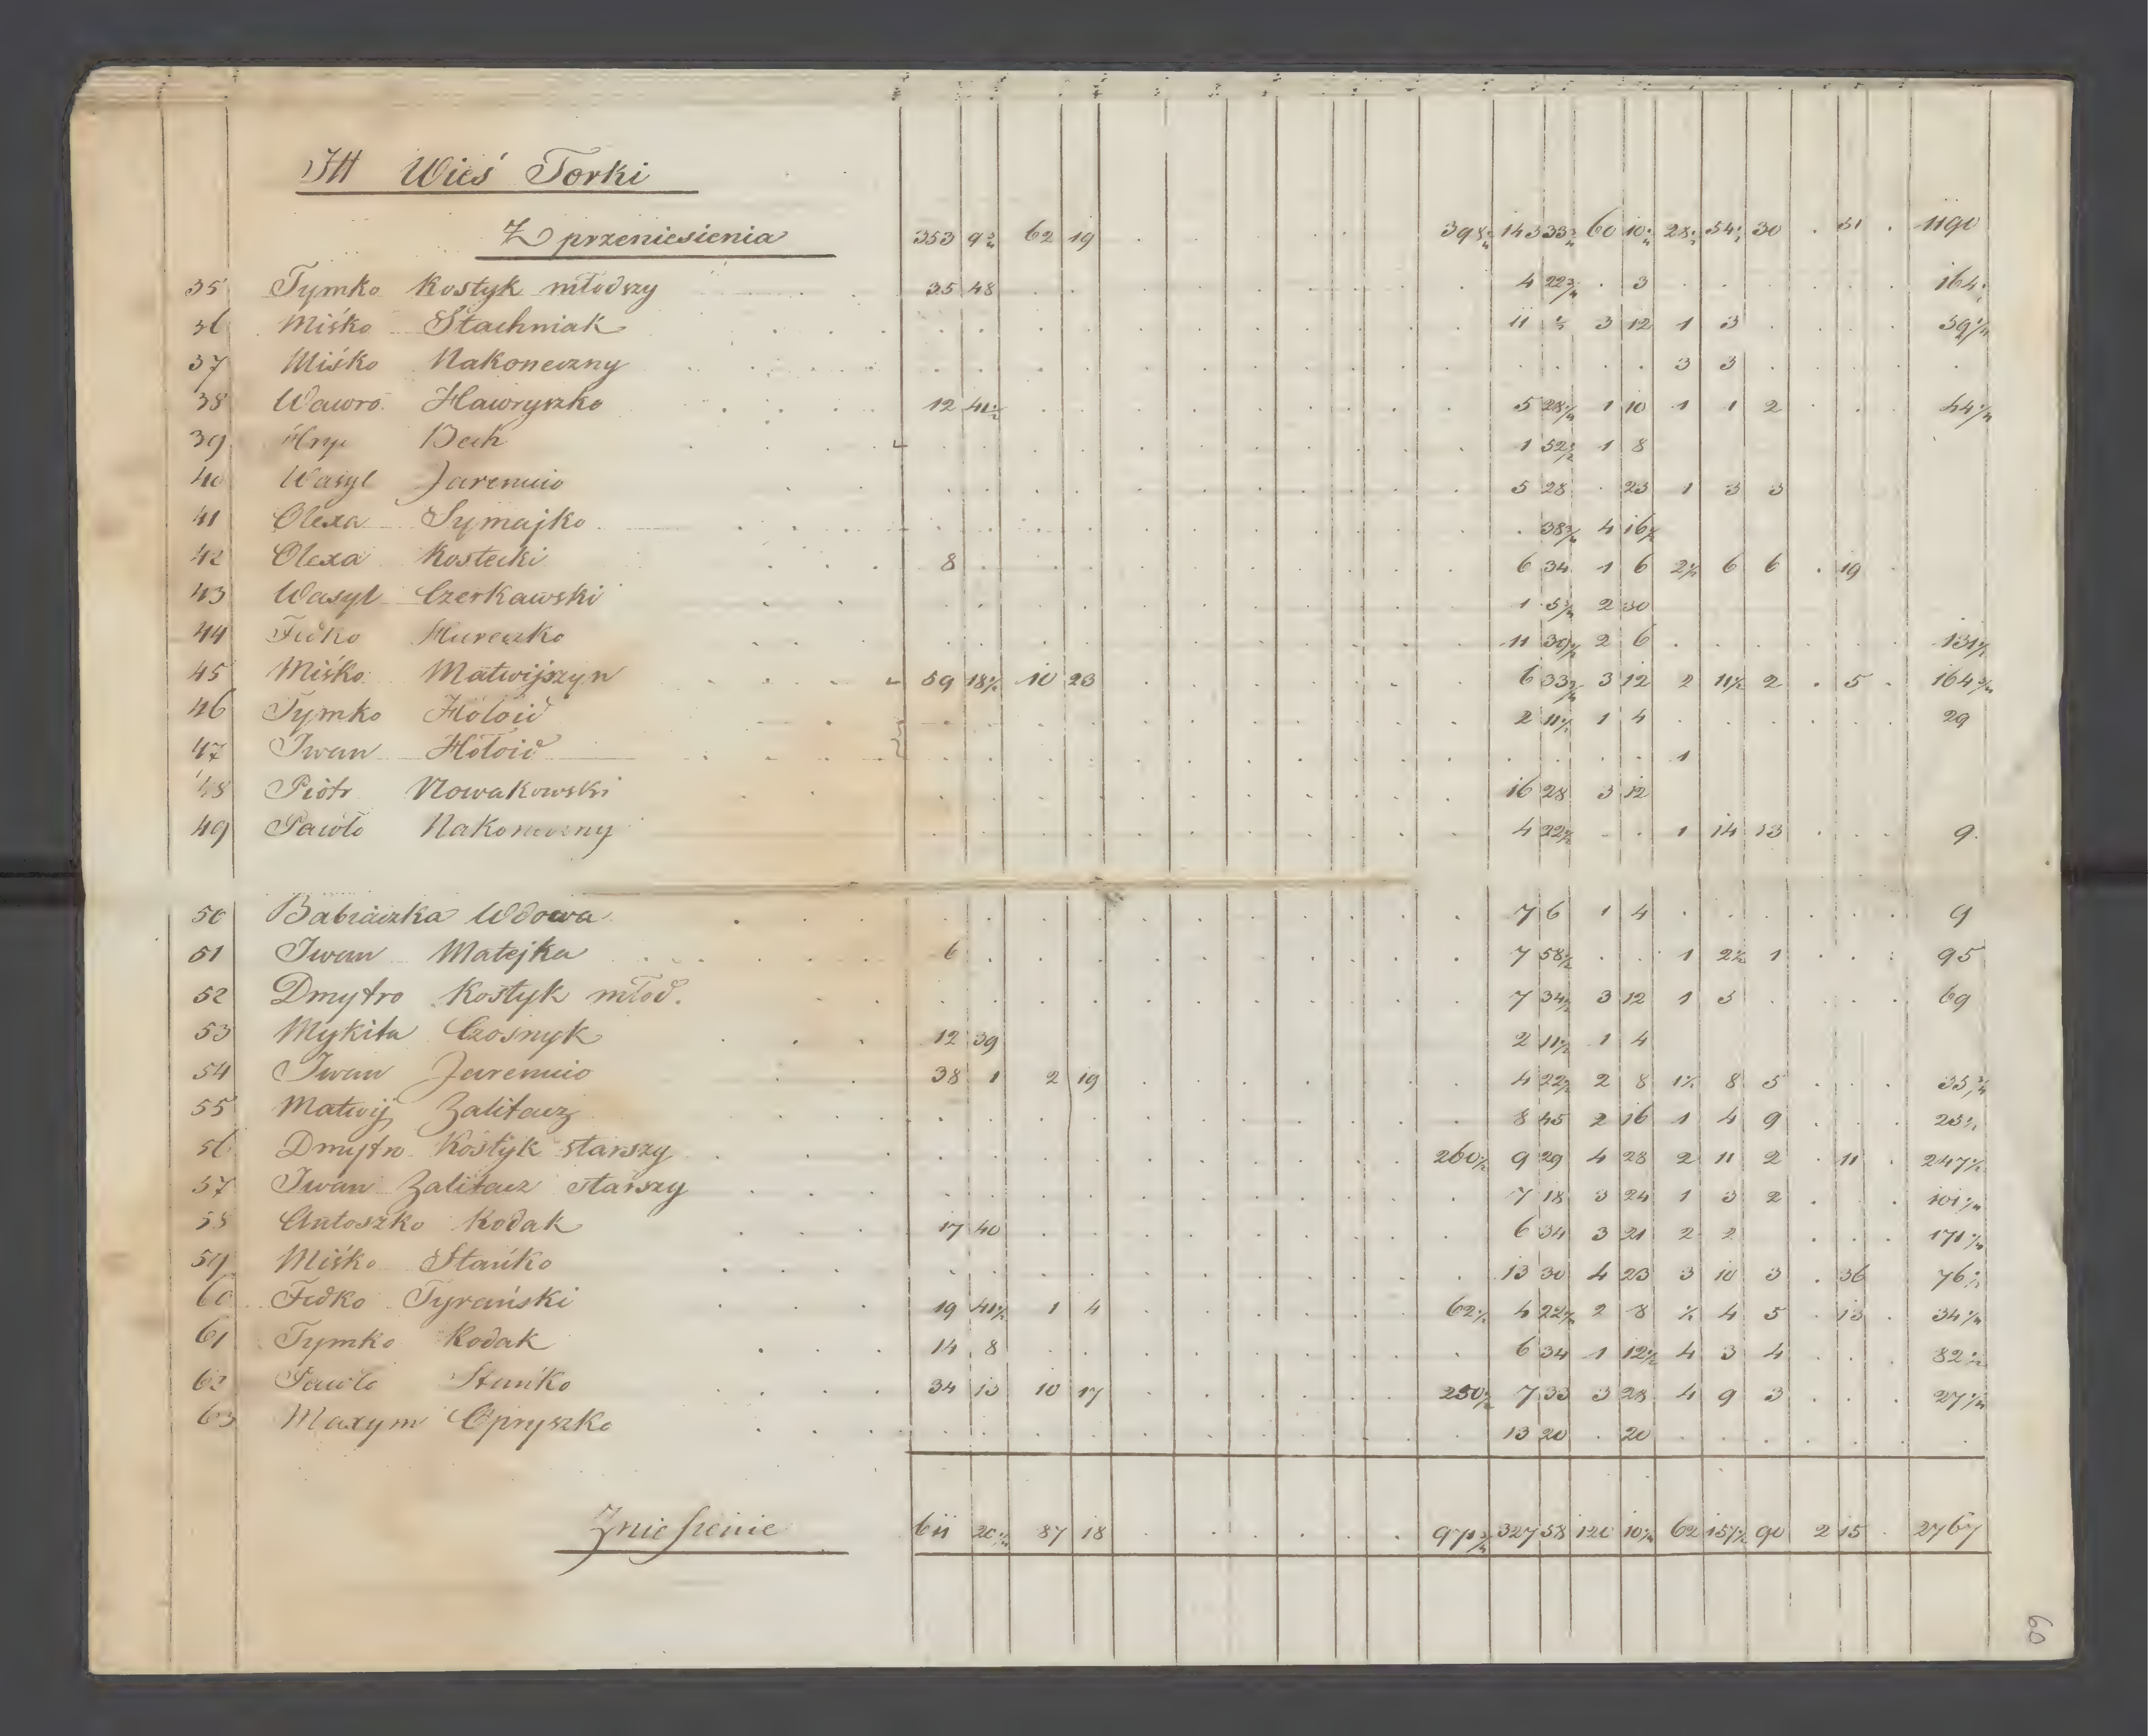 III Wieś Torki
Z przeniesienia 353 9 2/4 62 19 . . . . . 398 2/4 143 33 3/4 60 10 28 54 30 . 31 . 1190
35 Tymko Kostyk młodszy 35 48 4 22 3/4 . 3 164
36 Miśko Stachniak 11 ½ 3 12 1 3 39
37 Miśko Nakoneczny 3 3
38 Wawro Hawryszko 12 41½ 5 28 1 10 1 1 2 44
39 Hryć Bech 1 52½ 1 8
40 Wasyl Jaremcio 5 28 . 23 1 3 3
41 Olexa Symajko . 38 4 16½
42 Olexa Kostecki 8 6 34 1 6 2½ 6 6 . 19
43 Wasyl Czerkawski 1 5 2 30
44 Fedko Hureczko 11 30½ 2 6 131½
45 Miśko Matwijszyn 59 18½ 10 23 6 33 3 12 2 11½ 2 . 5 . 164
46 Tymko Hołoid 2 11½ 1 4 29
47 Iwan Hołoid 1
48 Piotr Nowakowski 16 28 3 12
49 Pawło Nakoneczny 4 22½ . . 1 14 13 9
50 Babiaczka Wdowa 7 6 1 4 9
51 Iwan Matejka 6 7 58½ . . 1 2½ 1 95
52 Dmytro Kostyk młod. 7 34½ 3 12 1 3 69
53 Mykita Czosnyk 12 39 2 11½ 1 4
54 Iwan Jaremcio 38 1 2 19 4 22½ 2 8 1½ 8 5 35
55 Matwij Zalitacz 8 45 2 16 1 4 9 23
56 Dmytro Kostyk starszy 260½ 9 29 4 28 2 11 2 . 11 . 247½
57 Iwan Zalitacz starszy 7 18 3 24 1 3 2 101
58 Antoszko Kodak 17 40 6 34 3 21 2 2 171
59 Miśko Stańko 13 30 4 23 3 10 3 . 36 76
60 Fedko Tyrański 19 41½ 1 4 62½ 4 22½ 2 8 ½ 4 5 . 13 . 34
61 Tymko Kodak 14 8 6 34 1 12½ 4 3 4 82
62 Pawło Stańko 34 13 10 17 250½ 7 33 3 28 4 9 3 27
63 Maxym Opryszko 13 20 . 20
Zniesienie 611 20 87 18 971 327 58 120 10 62 157½ 90 2 15 . 2767
60